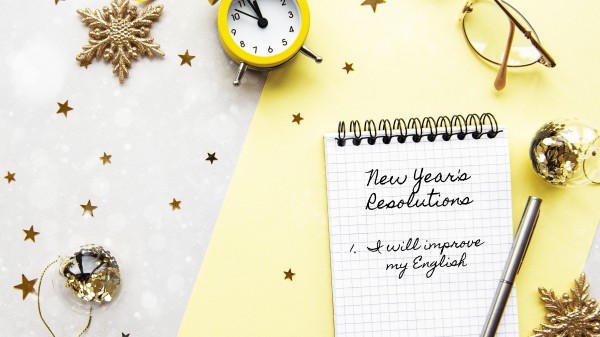 10
9
8
7
6
5
4
3
2
New Year's
Resolutions
1. I will improve
my English